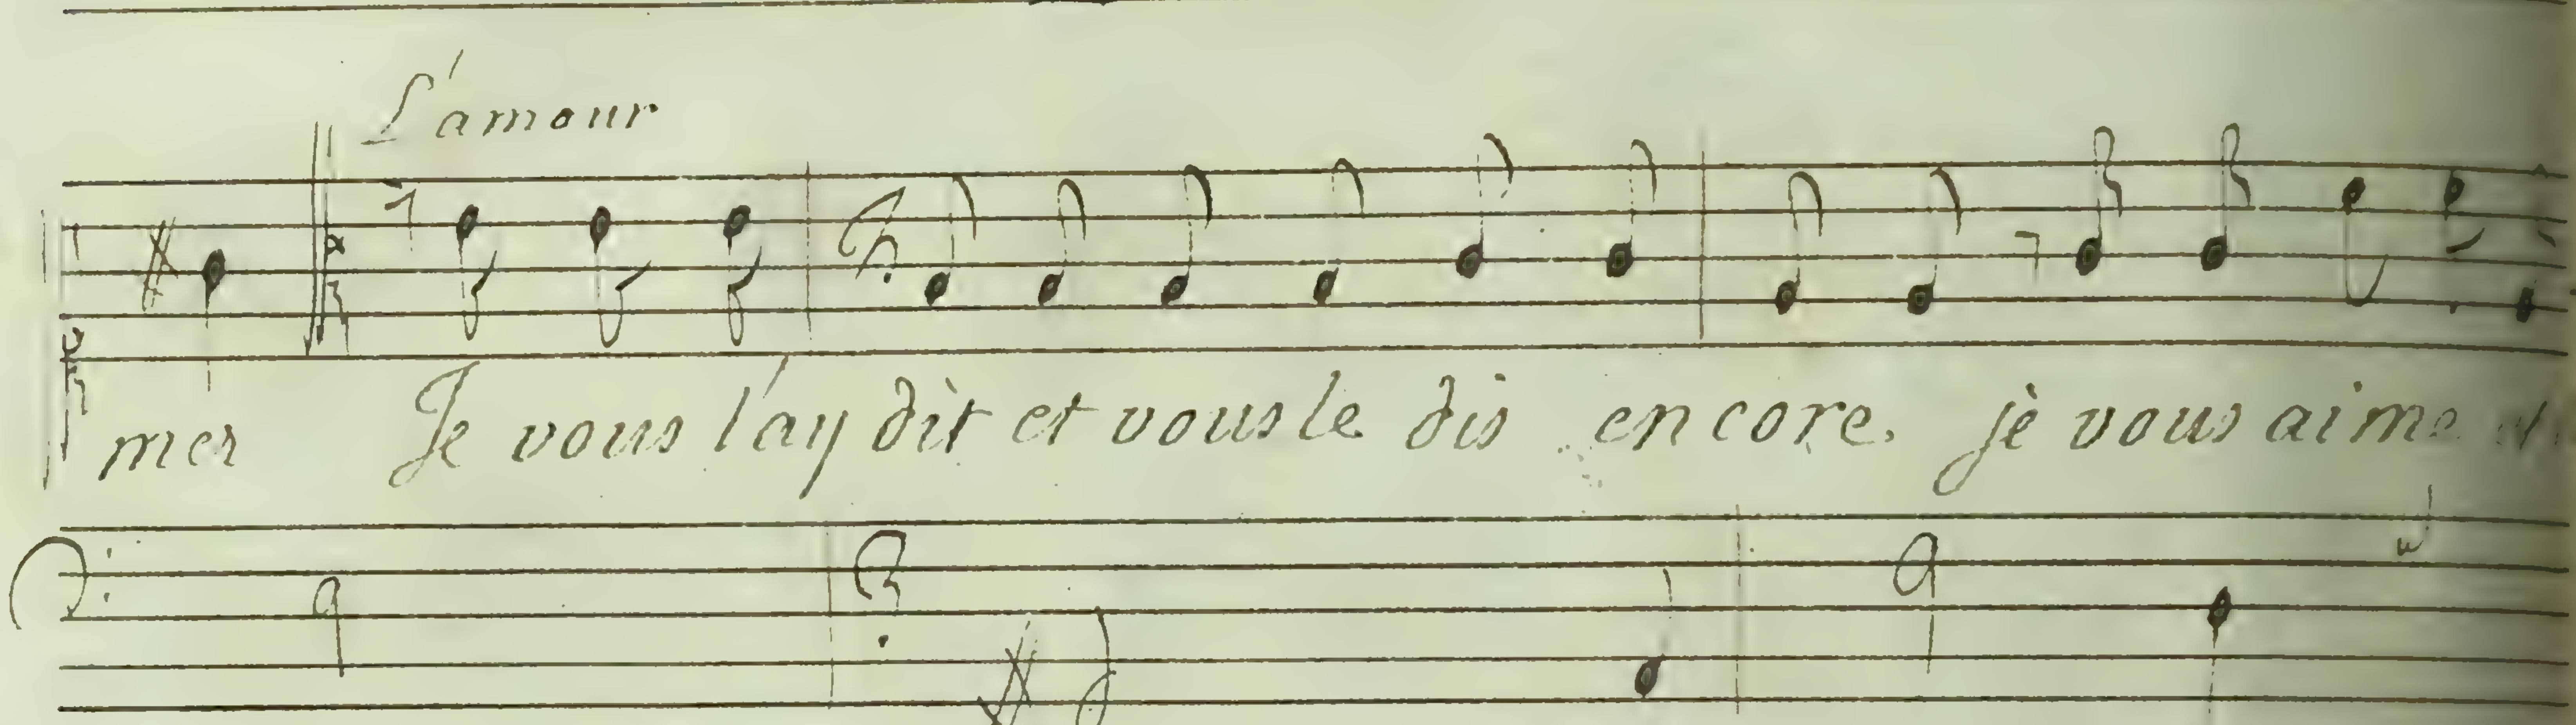 L'amour
mer Je vous l'ay dit et vous le dis encore. jè vous aime